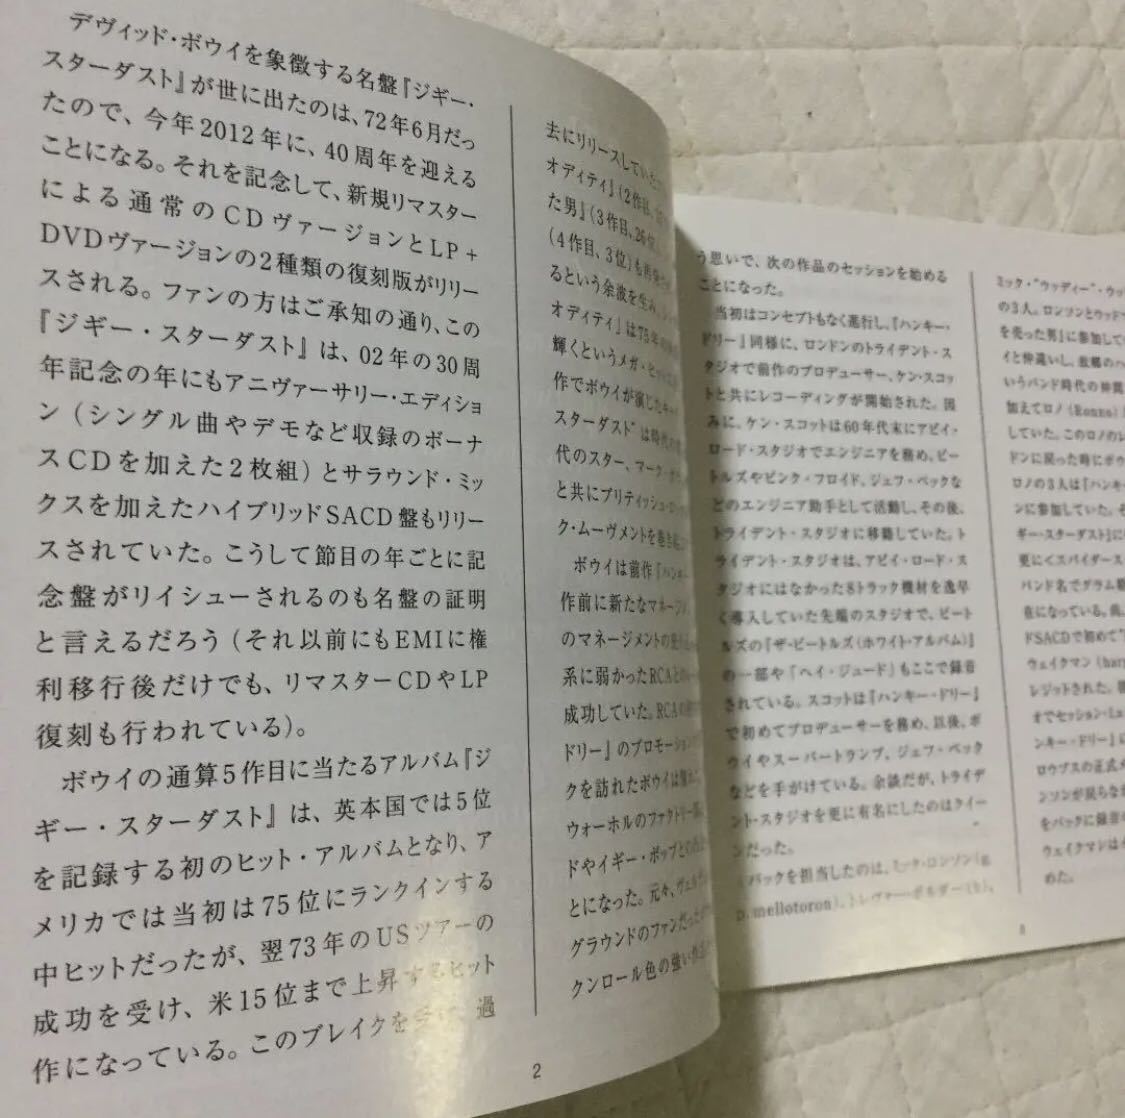 デヴィッド・ボウイを象徴する名盤『ジギー・
スターダスト』が世に出たのは、72年6月だっ
たので、今年2012年に、40周年を迎える
ことになる。それを記念して、新規リマスター
による通常のCDヴァージョンとLP+
DVDヴァージョンの2種類の復刻版がリリー
スされる。ファンの方はご承知の通り、この
『ジギー・スターダスト』は、02年の30周
年記念の年にもアニヴァーサリー・エディショ
ン(シングル曲やデモなど収録のボーナ
スCDを加えた2枚組)とサラウンド・ミッ
クスを加えたハイブリッドSACD盤もリリー
スされていた。こうして節目の年ごとに記
念盤がリイシューされるのも名盤の証明
と言えるだろう(それ以前にもEMIに権
利移行後だけでも、リマスターCDやLP
復刻も行われている)。
ボウイの通算5作目に当たるアルバム『ジ
ギー・スターダスト』は、英本国では5位
を記録する初のヒット・アルバムとなり、ア
メリカでは当初は75位にランクインする
中ヒットだったが、翌73年のUSツアーの
成功を受け、米15位まで上昇するヒット
作になっている。このブレイクを 過
去にリリースしていた
オディティ』(2作目、
た男』(3作目、26位
(4作目、3位)も再
るという余波を生み、
オディティ』は75年
輝くというメガ・
作でボウイが演じたキ
スターダスト"は時代の
代のスター、マーク・
と共にブリティッシュ・ロッ
ク・ムーヴメントを巻き
ボウイは前作『ハンキー・
作前に新たなマネージ
のマネージメントの
系に弱かったRCAと
成功していた。RCAの
ドリー』のプロモーション
クを訪れたボウイは
ウォーホルのファクトリー
ドやイギー・ポップとの
とになった。元々、ヴェル
グラウンドのファンだった
クンロール色の強い
2
う思いで、次の作品のセッションを始める
ことになった。
当初はコンセプトもなく進行し、『ハンキー・
ドリー』同様に、ロンドンのトライデント・ス
タジオで前作のプロデューサー、ケン・スコッ
トと共にレコーディングが開始された。因
みに、ケン・スコットは60年代末にアビイ・
ロード・スタジオでエンジニアを務め、ビー
トルズやピンク・フロイド、ジェフ・ベックな
どのエンジニア助手として活動し、その後、
トライデント・スタジオに移動していた。ト
ライデント・スタジオは、アビイ・ロード・ス
タジオにはなかった8トラック機材を逸早
く導入していた先端のスタジオで、ビート
ルズの『ザ・ビートルズ(ホワイト・アルバム)』
の一部や「ヘイ・ジュード」もここで録音
されている。スコットは『ハンキー・ドリー』
で初めてプロデューサーを務め、以後、ボ
ウイやスーパートランプ、ジェフ・ベック
などを手がけている。余談だが、トライデ
ント・スタジオを更に有名にしたのはクイー
ンだった。
バックを担当したのは、ミック・ロンソン(g,
p, mellotoron)、トレヴァー・ボルダー(b)、
ミック・"ウッディー"・ウッ
の3人。ロンソンとウッド
を売った男』に参加して
イと仲違いし、故郷のハ
いうバンド時代の仲間
加えてロノ(Ronno)
していた。このロノのレ
ドンに戻った時にボウ
ロノの3人は『ハンキー
ンに参加していた。そ
ギー・スターダスト』に
更にくスパイダース
バンド名でグラム
在になっている。尚、
ドSACDで初めて"
ウェイクマン(har
レジットされた。
オでセッション・ミュ
ンキー・ドリー』に
ロウブスの正式
ンソンが戻らな
をバックに録音
ウェイクマンは
めた。